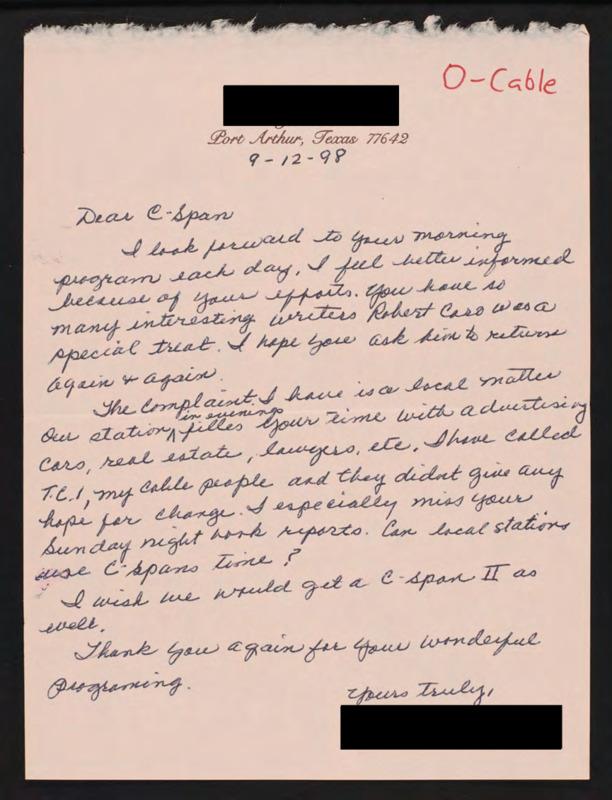 O-Cable
Port Arthur, Texas 77642
9-12-98
Dear C-Span
I look forward to your morning
program each day. I feel better informed
because of your efforts. You have so
many interesting writers Robert Caro was a
special treat. I hope you ask him to return
again & again.
The complaint I have is a local matter
Our station in evenings filles your time with advertising
cars, real estate, lawyers, etc. I have called
T.C.I, my cable people and they didnt give any
hope for change. I especially miss your
Sunday night book reports. Can local stations
use C-Spans time?
I wish we would get a C-Span II as
well.
Thank you again for your wonderful
programing.
Yours truly,